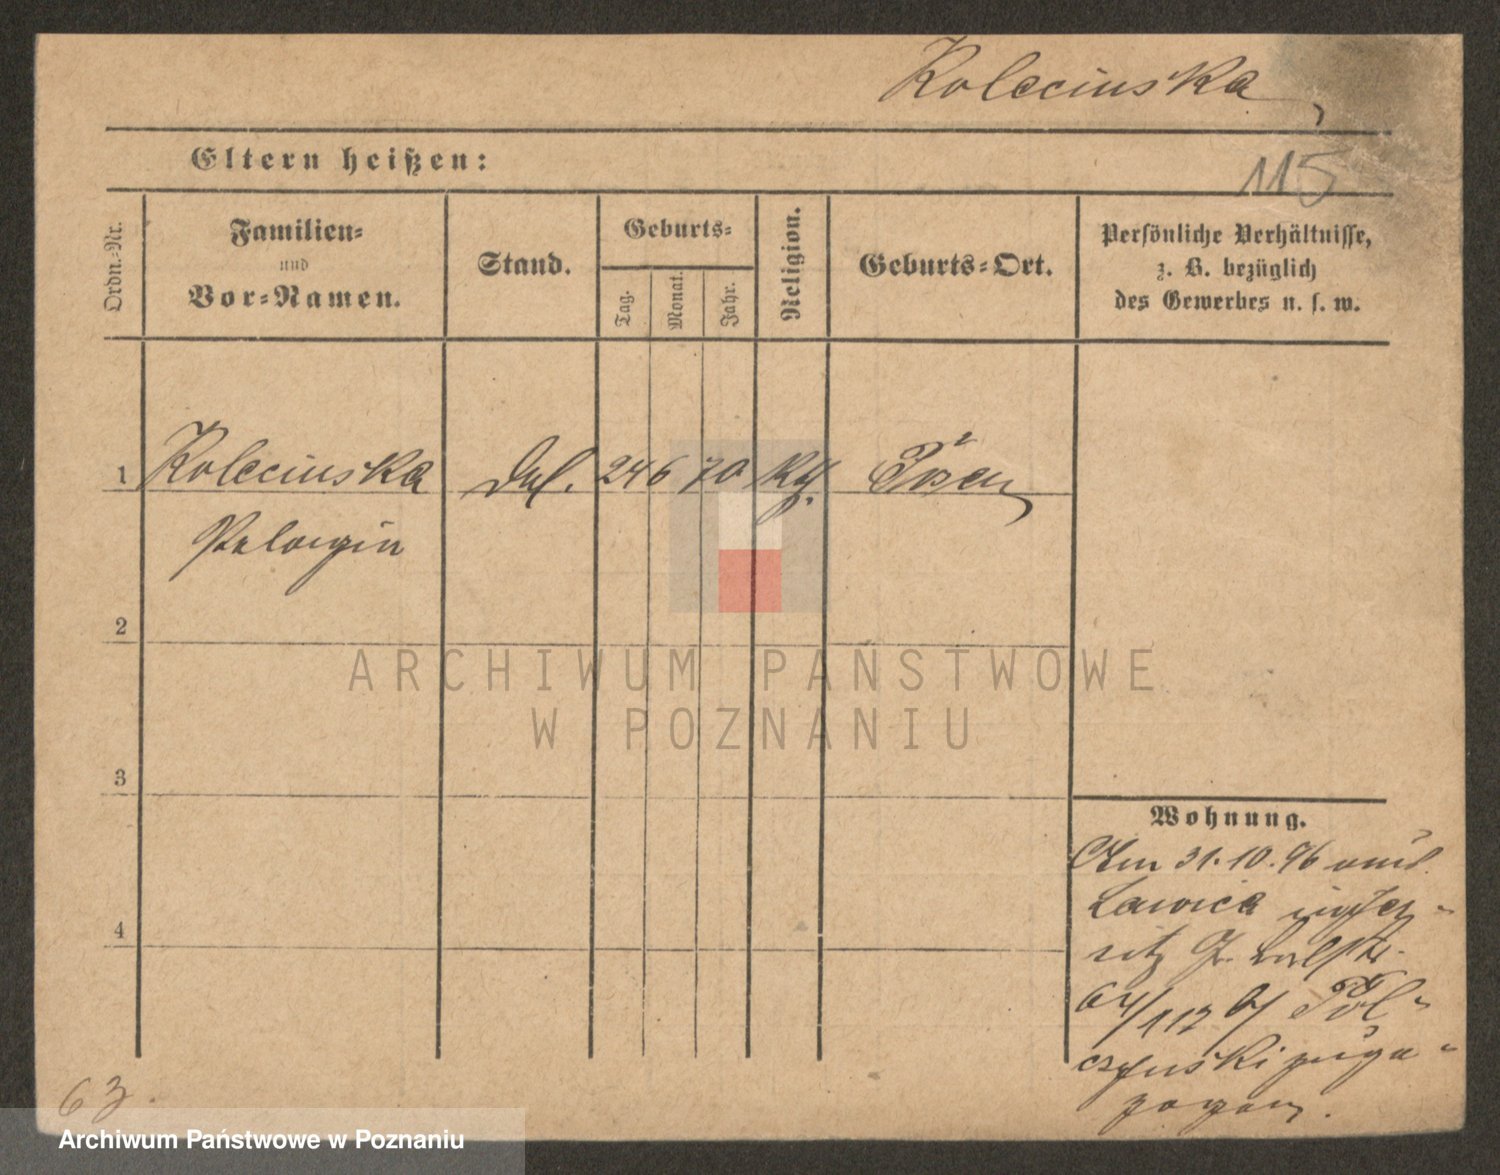 Kolecinska
115
Eltern heißen:
Ordn.-Nr.
Familien-
und
Vor-Namen.
Stand.
Geburts-
Tag.
Monat.
Jahr.
Religion.
Geburts-Ort.
Persönliche Verhältnisse,
z. B. bezüglich
des Gewerbes u. s. w.
1 Kolecinska 24 6 70 Posen
Pelagia
2
ARCHIWUM PAŃSTWOWE
W POZNANIU
3
Wohnung.
Am 31.10.96
Lawica
64/117 b/ Pol-
czynski zuge-
zogen.
4
63.
Archiwum Państwowe w Poznaniu